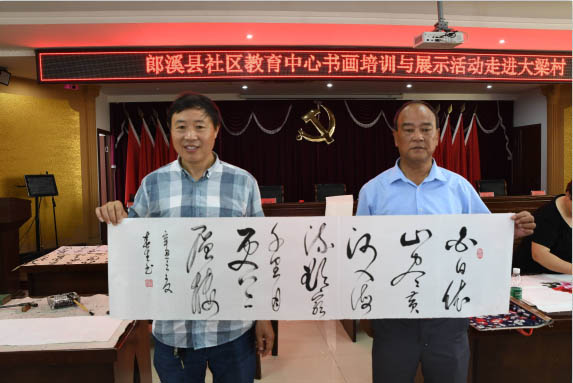 郎溪县社区教育中心书画培训与展示活动走进大梁村
白日依
山尽黄
河入海
流欲穷
千里目
更上一
层楼
辛丑之夏